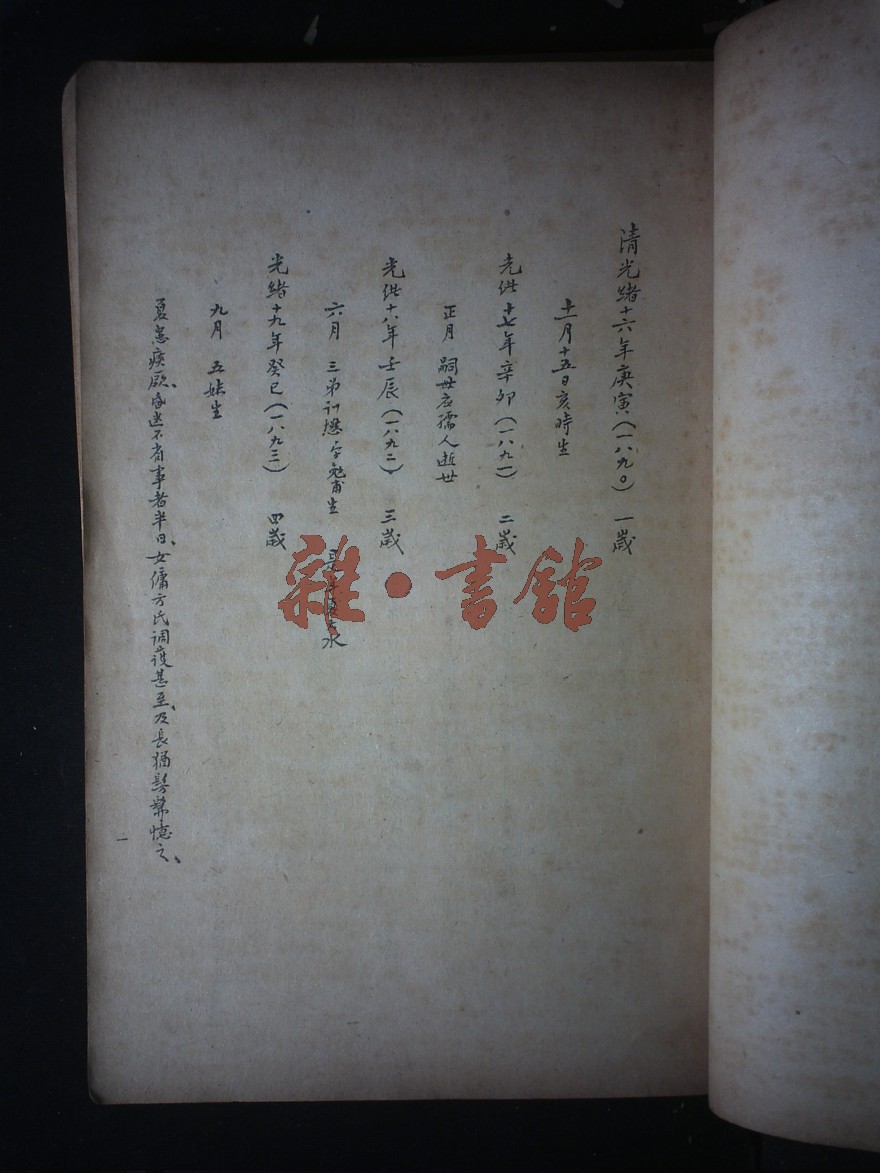 清光緒十六年庚寅(一八九〇) 一歲
十一月十五日亥時生
光緒十七年辛卯(一八九一) 二歲
正月 嗣母 孺人逝世
光緒十八年壬辰(一八九二) 三歲
六月 三弟訓懋字勉甫生 水
光緒十九年癸巳(一八九三) 四歲
九月 五妹生
夏患痰厥、昏迷不省事者半日、女傭方氏调护甚至、及長猶髣髴憶之、
一
雜·書館